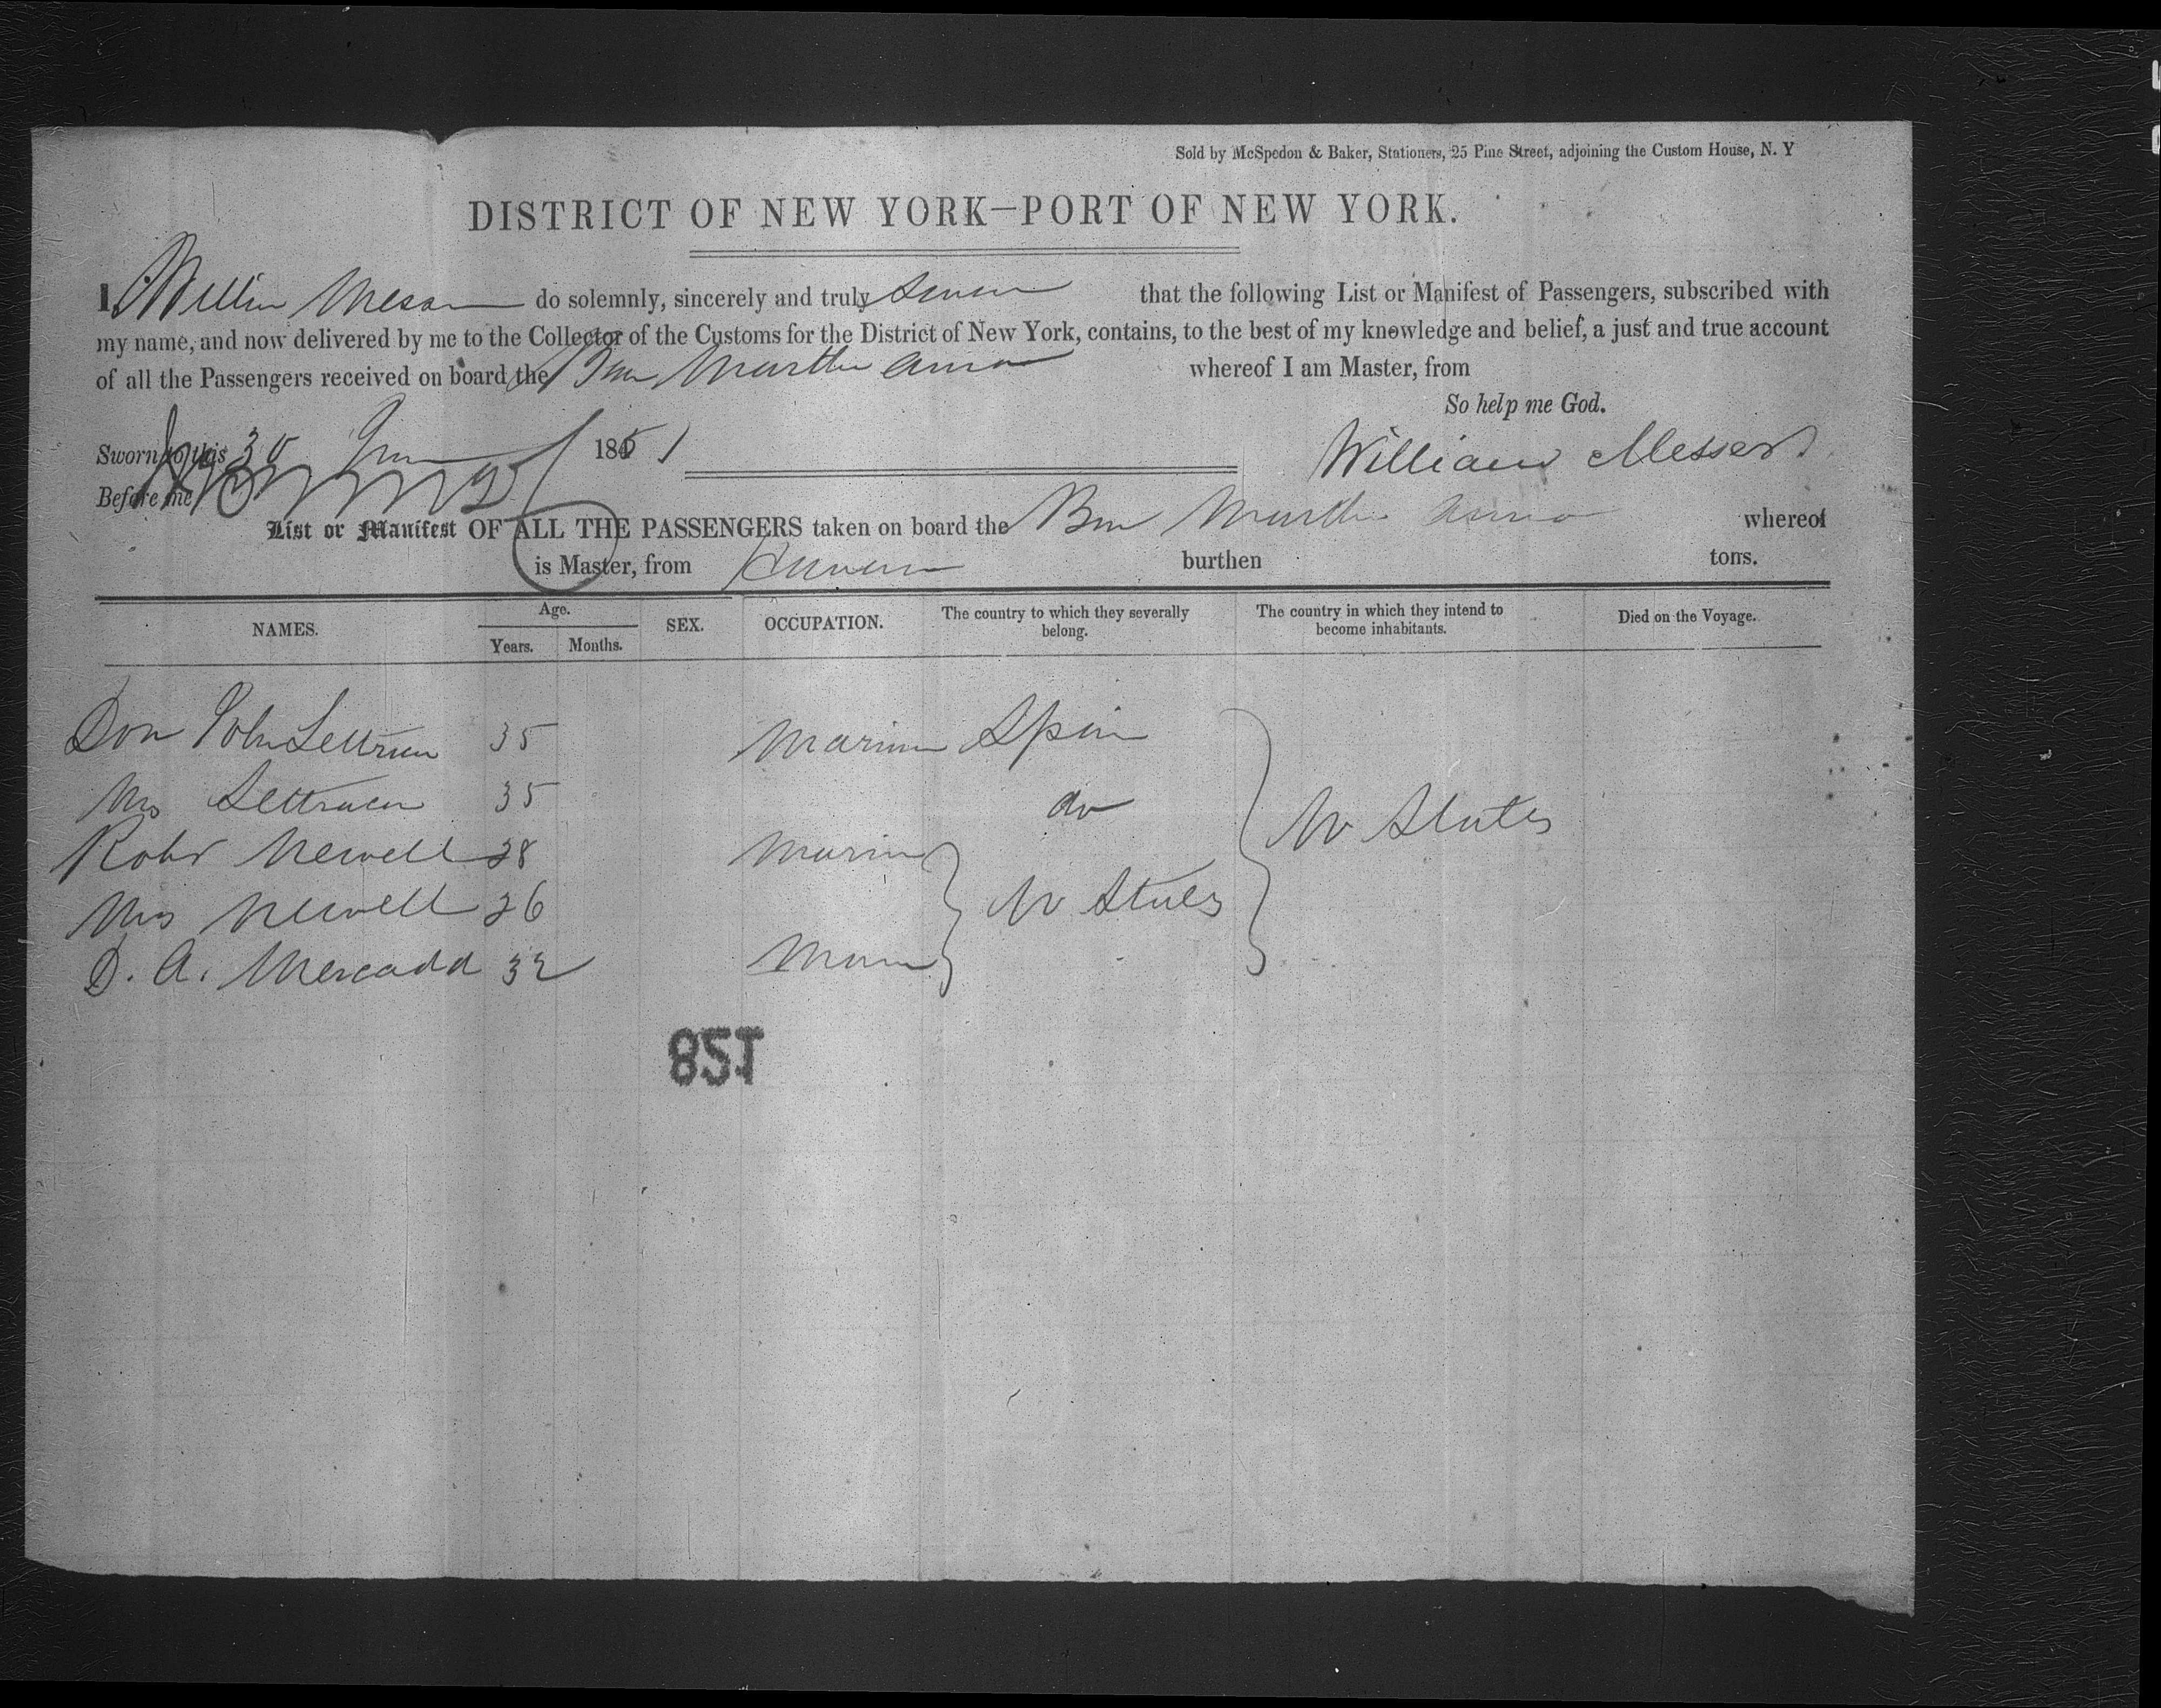 Sold by McSpedon & Baker, Stationers, 25 Pine Street, adjoining the Custom House, N. Y
DISTRICT OF NEW YORK—PORT OF NEW YORK.
I, do solemnly, sincerely and truly that the following List or Manifest of Passengers, subscribed with
my name, and now delivered by me to the Collector of the Customs for the District of New York, contains, to the best of my knowledge and belief, a just and true account
of all the Passengers received on board the Martha Anna whereof I am Master, from
So help me God.
Sworn to this 30 184 51
William Messer
Before me
List or Manifest OF ALL THE PASSENGERS taken on board the Martha Anna whereof
is Master, from burthen tons.
NAMES. Age. Years. Months. SEX. OCCUPATION. The country to which they severally belong. The country in which they intend to become inhabitants. Died on the Voyage.
Don John 35 Spain
Mrs 35 do
Robt Newell 28 U States
Mrs Newell 26 U States
D. A. Mercado 32
128